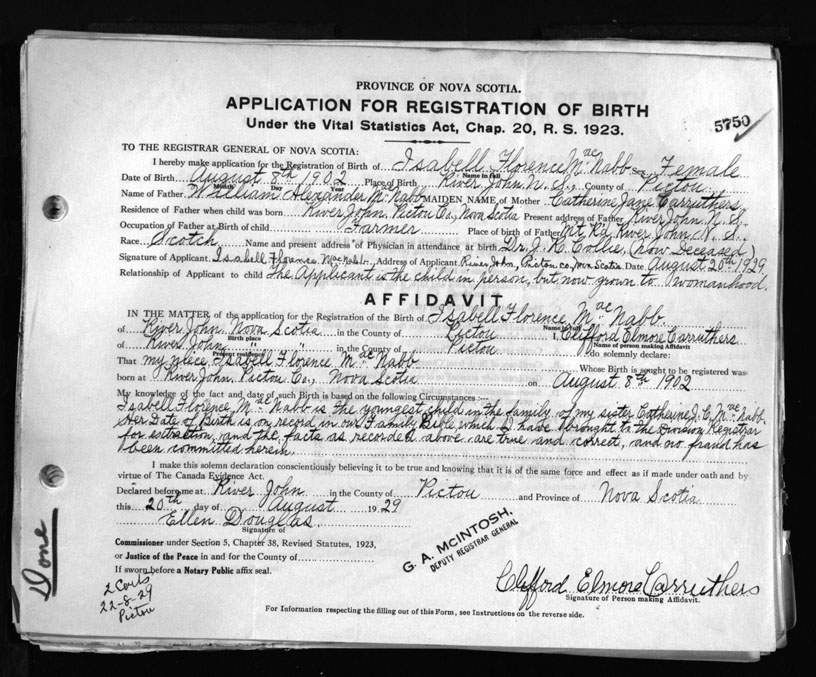 PROVINCE OF NOVA SCOTIA.
APPLICATION FOR REGISTRATION OF BIRTH
Under the Vital Statistics Act, Chap. 20, R. S. 1923.
5750
TO THE REGISTRAR GENERAL OF NOVA SCOTIA:
I hereby make application for the Registration of Birth of Isabell Florence MacNabb Sex Female
Name in full
Date of Birth August 8th 1902 Place of Birth River John N. S., County of Pictou
Month Day Year
Name of Father William Alexander McNabb MAIDEN NAME of Mother Catherine Jane Carruthers
Residence of Father when child was born River John, Pictou Co., Nova Scotia Present address of Father River John N. S.
Occupation of Father at Birth of child Farmer Place of birth of Father Mt. Rd. River John N. S.
Race Scotch Name and present address of Physician in attendance at birth Dr. J. K. Collie, (now Deceased)
Signature of Applicant Isabell Florence MacNabb, Address of Applicant River John, Pictou Co., Nova Scotia. Date August 20th 1929
Relationship of Applicant to child The Applicant is the child in person, but now grown to womanhood.
AFFIDAVIT
IN THE MATTER of the application for the Registration of the Birth of Isabell Florence MacNabb.
Name in full
of River John, Nova Scotia in the County of Pictou I, Clifford Elmore Carruthers
Birth place Name of person making Affidavit
of River John in the County of Pictou do solemnly declare:
Present residence
That my niece Isabell Florence MacNabb Whose Birth is sought to be registered was
born at River John, Pictou Co., Nova Scotia on August 8th 1902
My knowledge of the fact and date of such Birth is based on the following Circumstances:—
Isabell Florence MacNabb is the youngest child in the family of my sister Catherine J. C. MacNabb.
Her Date of Birth is on record in our Family Bible which I have brought to the Division Registrar
for extraction, and the facts as recorded above are true and correct, and no fraud has
been committed herein.
I make this solemn declaration conscientiously believing it to be true and knowing that it is of the same force and effect as if made under oath and by
virtue of The Canada Evidence Act.
Declared before me at River John in the County of Pictou and Province of Nova Scotia
this 20th day of August 1929
Ellen Douglas
Signature of
Commissioner under Section 5, Chapter 38, Revised Statutes, 1923,
or Justice of the Peace in and for the County of
If sworn before a Notary Public affix seal.
G. A. McINTOSH,
DEPUTY REGISTRAR GENERAL
Clifford Elmore Carruthers
Signature of Person making Affidavit.
For Information respecting the filling out of this Form, see Instructions on the reverse side.
Done
2 Certs
22-8-29
Pictou